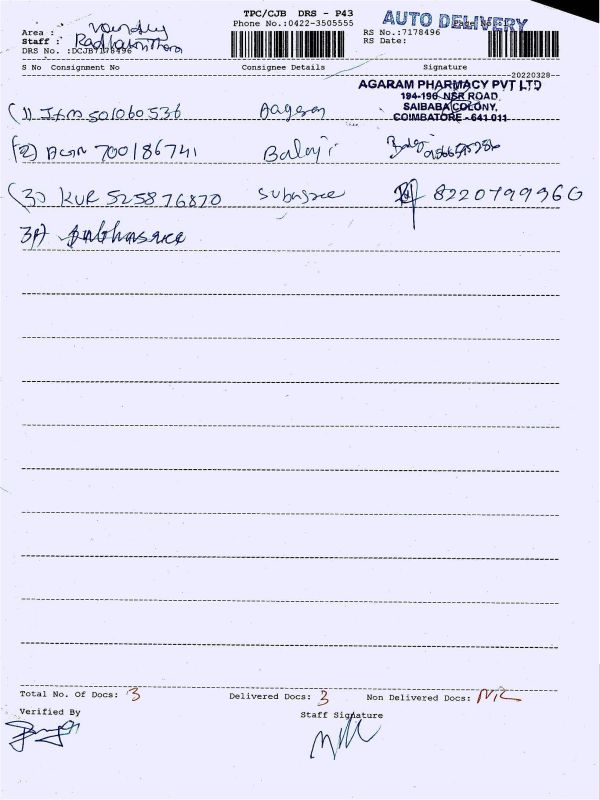 TPC/CJB DRS - P43
AUTO DELIVERY
Area :
Phone No.:0422-3505555
RS No.:7178496
Page No
Staff :
RS Date:
DRS No. :DCJB7178496
S No Consignment No Consignee Details Signature
20220328
AGARAM PHARMACY PVT LTD
194-196 NSR ROAD,
SAIBABA COLONY,
COIMBATORE - 641 011
(1) 501060536 Aagaran
(2) 700186741 Balaji
(3) KUR 525876820 Subasree 8220799960
Total No. Of Docs: 3 Delivered Docs: 3 Non Delivered Docs: NIL
Verified By
Staff Signature